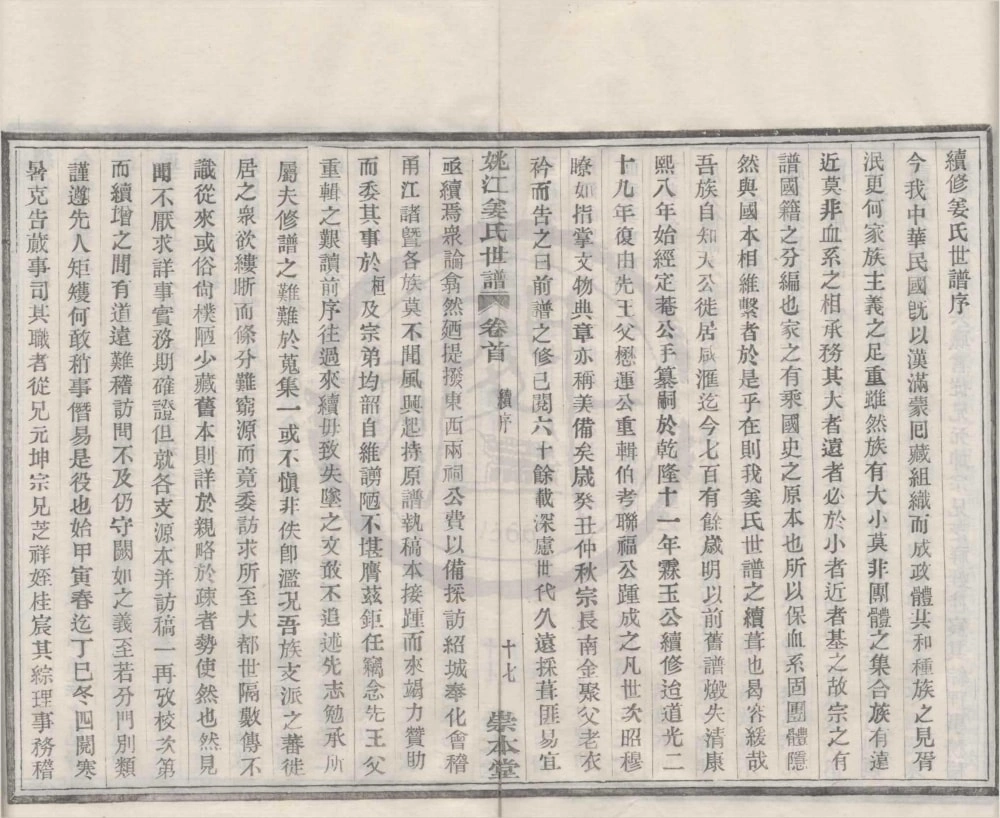 續修姜氏世譜序
今我中華民國旣以漢滿蒙囘藏組織而成政體共和種族之見胥
泯更何家族主義之足重雖然族有大小莫非團體之集合族有遠
近莫非血系之相承務其大者遠者必於小者近者基之故宗之有
譜國籍之分編也家之有乘國史之原本也所以保血系固團體隱
然與國本相維繫者於是乎在則我姜氏世譜之續葺也曷容緩哉
吾族自知大公徙居咸滙迄今七百有餘歲明以前舊譜燬失淸康
熙八年始經定菴公手纂嗣於乾隆十一年霖玉公續修迨道光二
十九年復由先王父懋運公重輯伯考聯福公踵成之凡世次昭穆
瞭如指掌文物典章亦稱美備矣歲癸丑仲秋宗長南金聚父老衣
衿而告之曰前譜之修已閱六十餘載深慮世代久遠採葺匪易宜
姚江姜氏世譜 卷首 續序 十七 崇本堂
亟續焉衆論翕然廼提撥東西兩祠公費以備採訪紹城奉化會稽
甬江諸暨各族莫不聞風興起持原譜執稿本接踵而來竭力贊助
而委其事於桓及宗弟均韶自維謭陋不堪膺茲鉅任竊念先王父
重輯之艱讀前序往過來續毋致失墜之文敢不追述先志勉承所
屬夫修譜之難難於蒐集一或不愼非佚卽濫况吾族支派之蕃徙
居之衆欲縷晣而條分難窮源而竟委訪求所至大都世隔數傳不
識從來或俗尙樸陋少藏舊本則詳於親略於疎者勢使然也然見
聞不厭求詳事實務期確證但就各支源本并訪稿一再攷校次第
而續增之間有道遠難稽訪問不及仍守闕如之義至若分門別類
謹遵先人矩矱何敢稍事僭易是役也始甲寅春迄丁巳冬四閱寒
暑克告蕆事司其職者從兄元坤宗兄芝祥姪桂宸其綜理事務稽